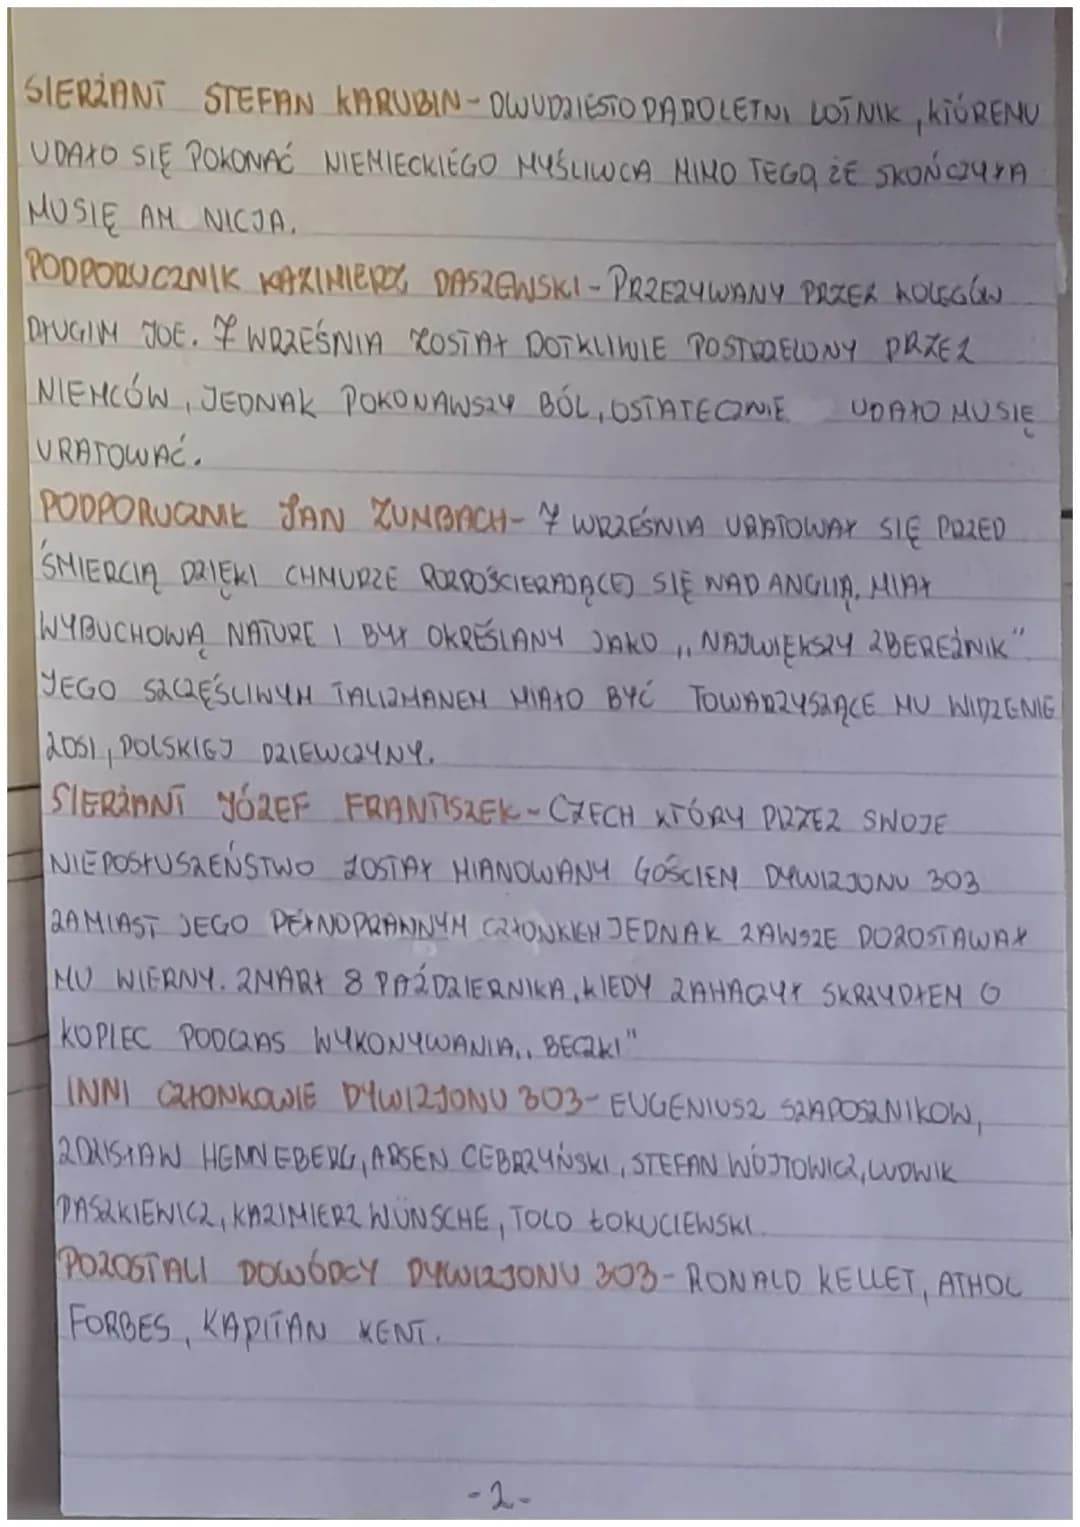 SIERŻANT STEFAN KARUBIN - DWUDZIESTOPAROLETNI LOTNIK, KTÓREMU
UDAŁO SIĘ POKONAĆ NIEMIECKIEGO MYŚLIWCA MIMO TEGO, ŻE SKOŃCZYŁA
MU SIĘ AMUNICJA.
PODPORUCZNIK KAZIMIERZ DASZEWSKI - PRZEZYWANY PRZEZ KOLEGÓW
DŁUGIM JOE. 7 WRZEŚNIA ZOSTAŁ DOTKLIWIE POSTRZELONY PRZEZ
NIEMCÓW, JEDNAK POKONAWSZY BÓL, OSTATECZNIE UDAŁO MU SIĘ
URATOWAĆ.
PODPORUCZNIK JAN ZUMBACH - 7 WRZEŚNIA URATOWAŁ SIĘ PRZED
ŚMIERCIĄ DZIĘKI CHMURZE ROZPOŚCIERAJĄCEJ SIĘ NAD ANGLIĄ. MIAŁ
WYBUCHOWĄ NATURĘ I BYŁ OKREŚLANY JAKO „NAJWIĘKSZY ZBEREŹNIK"
JEGO SZCZĘŚLIWYM TALIZMANEM MIAŁO BYĆ TOWARZYSZĄCE MU WIDZENIE
ZOSI, POLSKIEJ DZIEWCZYNY.
SIERŻANT JÓZEF FRANTISZEK - CZECH KTÓRY PRZEZ SWOJE
NIEPOSŁUSZEŃSTWO ZOSTAŁ MIANOWANY GOŚCIEM DYWIZJONU 303
ZAMIAST JEGO PEŁNOPRAWNYM CZŁONKIEM JEDNAK ZAWSZE POZOSTAWAŁ
MU WIERNY. ZMARŁ 8 PAŹDZIERNIKA, KIEDY ZAHACZYŁ SKRZYDŁEM O
KOPIEC PODCZAS WYKONYWANIA „BECZKI"
INNI CZŁONKOWIE DYWIZJONU 303 - EUGENIUSZ SZAPOSZNIKOW,
ZDZISŁAW HENNEBERG, ARSEN CEBRZYŃSKI, STEFAN WÓJTOWICZ, LUDWIK
PASZKIEWICZ, KAZIMIERZ WÜNSCHE, TOLO ŁOKUCIEWSKI.
POZOSTALI DOWÓDCY DYWIZJONU 303 - RONALD KELLET, ATHOL
FORBES, KAPITAN KENT.
- 2 -